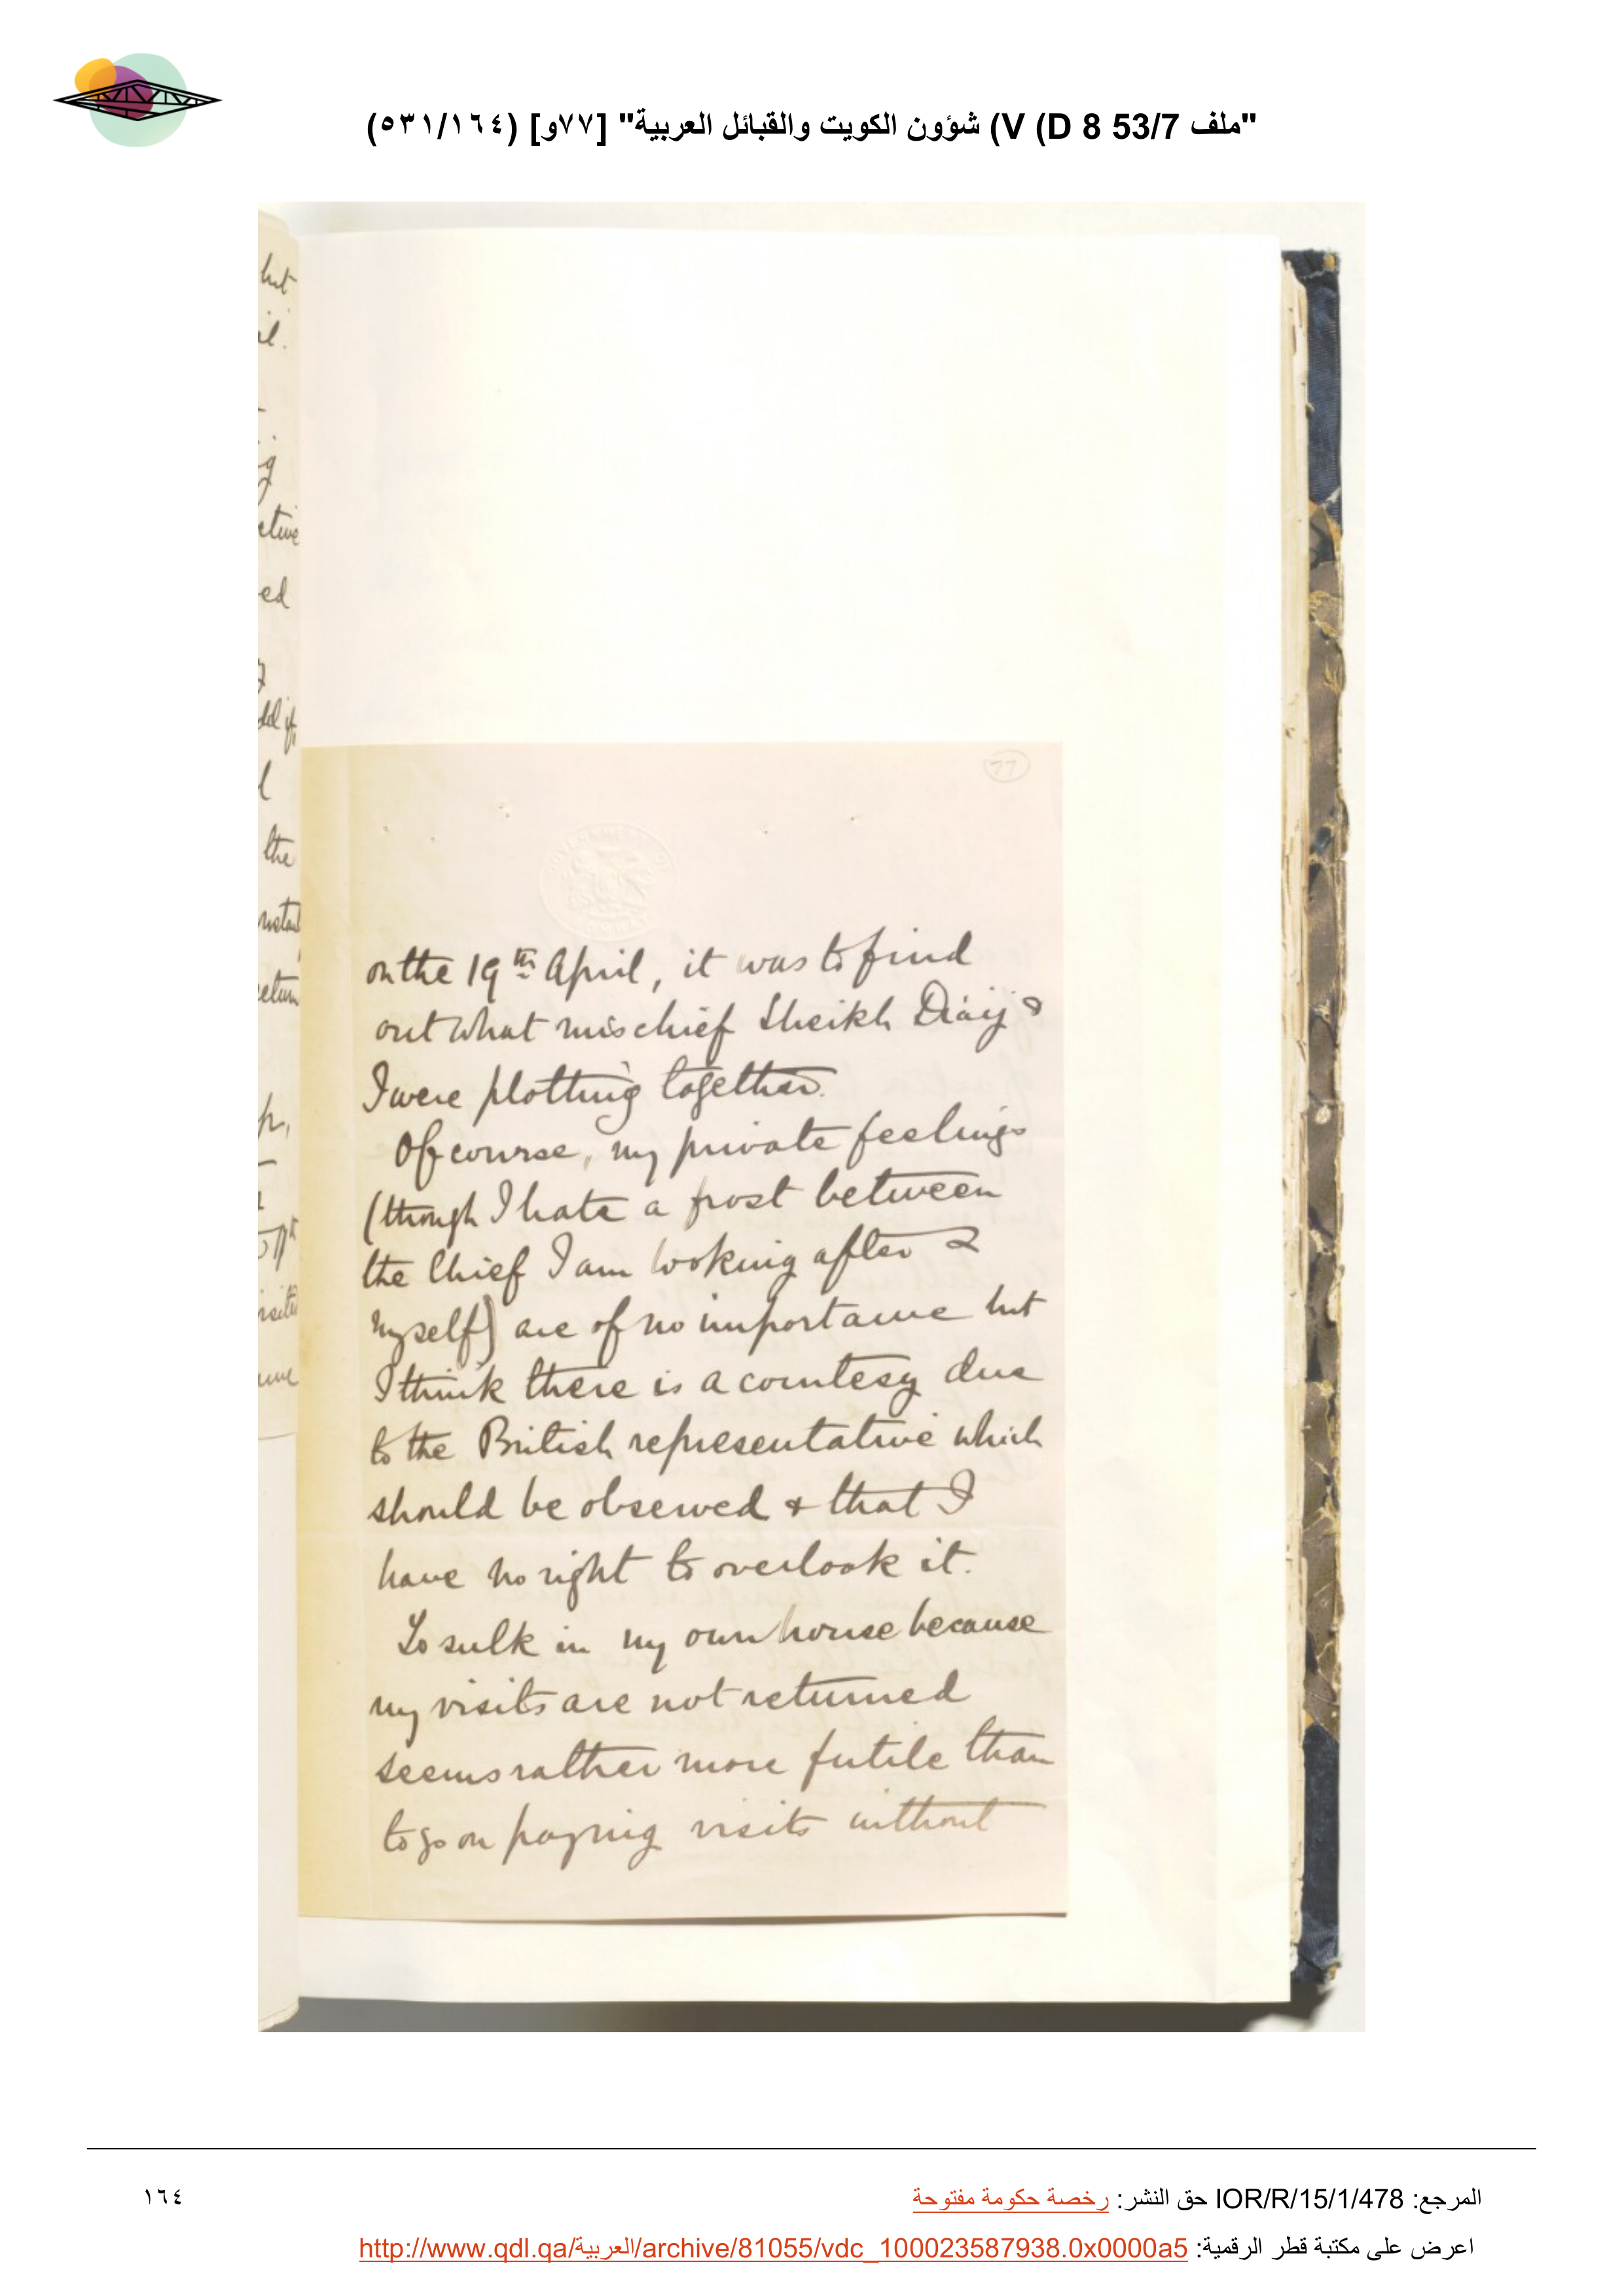 "ملف 53/7 D 8) V) شؤون الكويت والقبائل العربية" [٧٧و] (٥٣١/١٦٤)
but
the
ed
77
on the 19th April, it was to find
out what mischief Sheikh Diaij &
I were plotting together.
Of course, my private feelings
(though I hate a frost between
the Chief I am looking after &
myself) are of no importance but
I think there is a courtesy due
to the British representative which
should be observed & that I
have no right to overlook it.
To sulk in my own house because
my visits are not returned
seems rather more futile than
to go on paying visits without
المرجع: IOR/R/15/1/478 حق النشر: رخصة حكومة مفتوحة
١٦٤
اعرض على مكتبة قطر الرقمية: http://www.qdl.qa/العربية/archive/81055/vdc_100023587938.0x0000a5